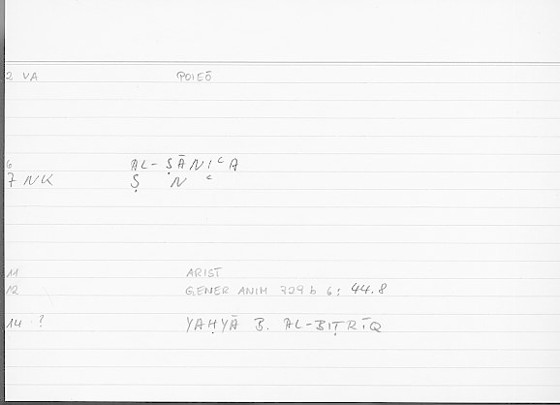 2 VA POIEŌ
6 AL-ṢĀNIʿA
7 NK Ṣ N ʿ
11 ARIST
12 GENER ANIM 729 b 6; 44.8
14 ? YAḤYĀ B. AL-BIṬRĪQ